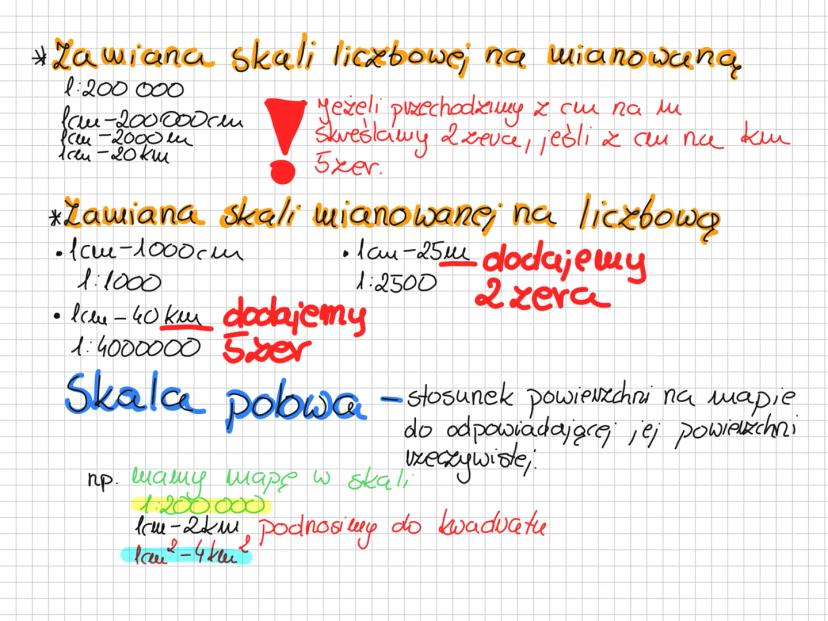 *Zamiana skali liczbowej na mianowaną
1:200 000
1cm - 200 000cm
1cm - 2000m
1cm - 20km
! Jeżeli przechodzimy z cm na m
skreślamy 2 zera, jeśli z cm na km
5 zer.
*Zamiana skali mianowanej na liczbową
• 1cm - 1000cm
1:1000
• 1cm - 25m dodajemy
1:2500 2 zera
• 1cm - 40km dodajemy
1:4000000 5 zer
Skala polowa - stosunek powierzchni na mapie
do odpowiadającej jej powierzchni
rzeczywistej.
np. mamy mapę w skali
1:200 000
1cm - 2km podnosimy do kwadratu
1cm² - 4km²